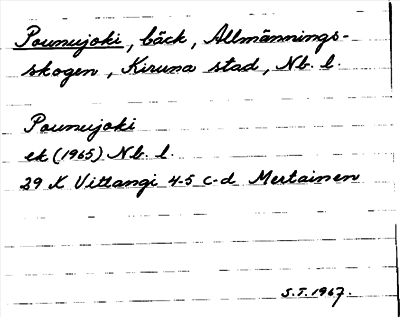 Pounujoki, bäck, Allmännings-
skogen, Kiruna stad, Nb. l.
Pounujoki
ek (1965) Nb. l.
29 K Vittangi 4-5 c-d Mertainen
S.T. 1967.